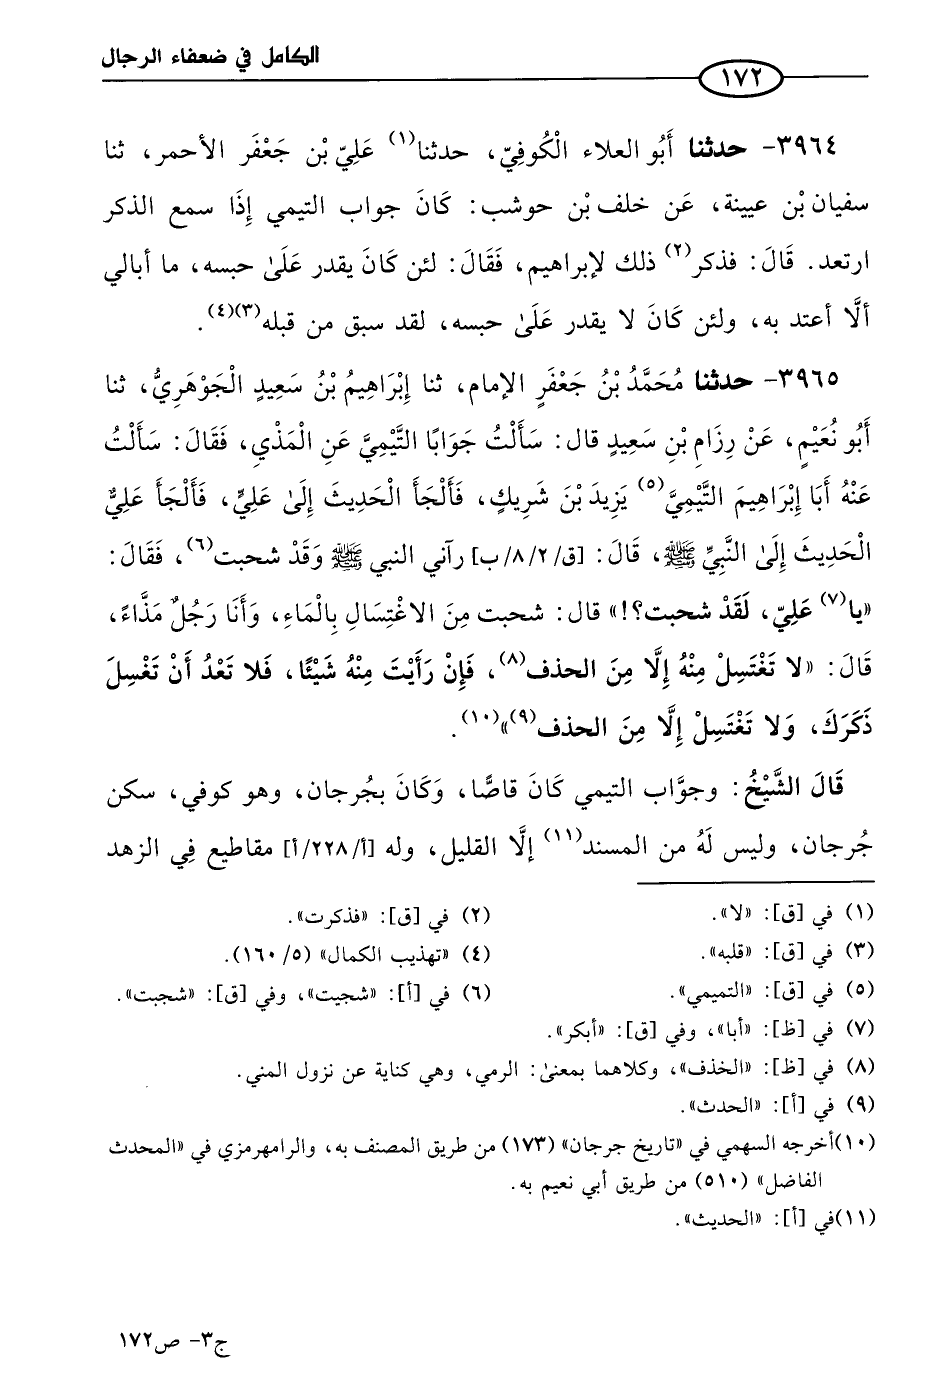 الكامل في ضعفاء الرجال
١٧٢
٣٩٦٤- حدثنا أَبُو العلاء الْكُوفِيّ، حدثنا(١) عَلِيّ بْن جَعْفَر الأحمر، ثنا
سفيان بْن عيينة، عَن خلف بْن حوشب: كَانَ جواب التيمي إِذَا سمع الذكر
ارتعد. قَالَ: فذكر(٢) ذلك لإبراهيم، فَقَالَ: لئن كَانَ يقدر عَلَىٰ حبسه، ما أبالي
ألَّا أعتد به، ولئن كَانَ لا يقدر عَلَىٰ حبسه، لقد سبق من قبله(٣)(٤).
٣٩٦٥- حدثنا مُحَمَّدُ بْنُ جَعْفَرٍ الإمام، ثنا إِبْرَاهِيمُ بْنُ سَعِيدٍ الْجَوْهَرِيُّ، ثنا
أَبُو نُعَيْمٍ، عَنْ رِزَامِ بْنِ سَعِيدٍ قال: سَأَلْتُ جَوَابًا التَّيْمِيَّ عَنِ الْمَذْيِ، فَقَالَ: سَأَلْتُ
عَنْهُ أَبَا إِبْرَاهِيمَ التَّيْمِيَّ(٥) يَزِيدَ بْنَ شَرِيكٍ، فَأَلْجَأَ الْحَدِيثَ إِلَىٰ عَلِيٍّ، فَأَلْجَأَ عَلِيٌّ
الْحَدِيثَ إِلَى النَّبِيِّ ﷺ، قَالَ: [ق/٨/٢/ب] رآني النبي ﷺ وَقَدْ شحبت(٦)، فَقَالَ:
«يا(٧) عَلِيّ، لَقَدْ شحبت؟!» قال: شحبت مِنَ الاغْتِسَالِ بِالْمَاءِ، وَأَنَا رَجُلٌ مَذَّاءً،
قَالَ: «لا تَغْتَسِلْ مِنْهُ إِلَّا مِنَ الحذف(٨)، فَإِنْ رَأَيْتَ مِنْهُ شَيْئًا، فَلا تَعْدُ أَنْ تَغْسِلَ
ذَكَرَكَ، وَلا تَغْتَسِلْ إِلَّا مِنَ الحذف(٩)»(١٠).
قَالَ الشَّيْخُ: وجوَّاب التيمي كَانَ قاصًّا، وَكَانَ بجُرجان، وهو كوفي، سكن
جُرجان، وليس لَهُ من المسند(١١) إلَّا القليل، وله [أ/٢٢٨/أ] مقاطيع فِي الزهد
(١) في [ق]: «لا».
(٢) في [ق]: «فذكرت».
(٣) في [ق]: «قلبه».
(٤) «تهذيب الكمال» (٥/ ١٦٠).
(٥) في [ق]: «التميمي».
(٦) في [أ]: «شجيت»، وفي [ق]: «شجبت».
(٧) في [ظ]: «أبا»، وفي [ق]: «أبكر».
(٨) في [ظ]: «الخذف»، وكلاهما بمعنىٰ: الرمي، وهي كناية عن نزول المني.
(٩) في [أ]: «الحدث».
(١٠)أخرجه السهمي في «تاريخ جرجان» (١٧٣) من طريق المصنف به، والرامهرمزي في «المحدث
الفاضل» (٥١٠) من طريق أبي نعيم به.
(١١)في [أ]: «الحديث».
ج٣- ص١٧٢